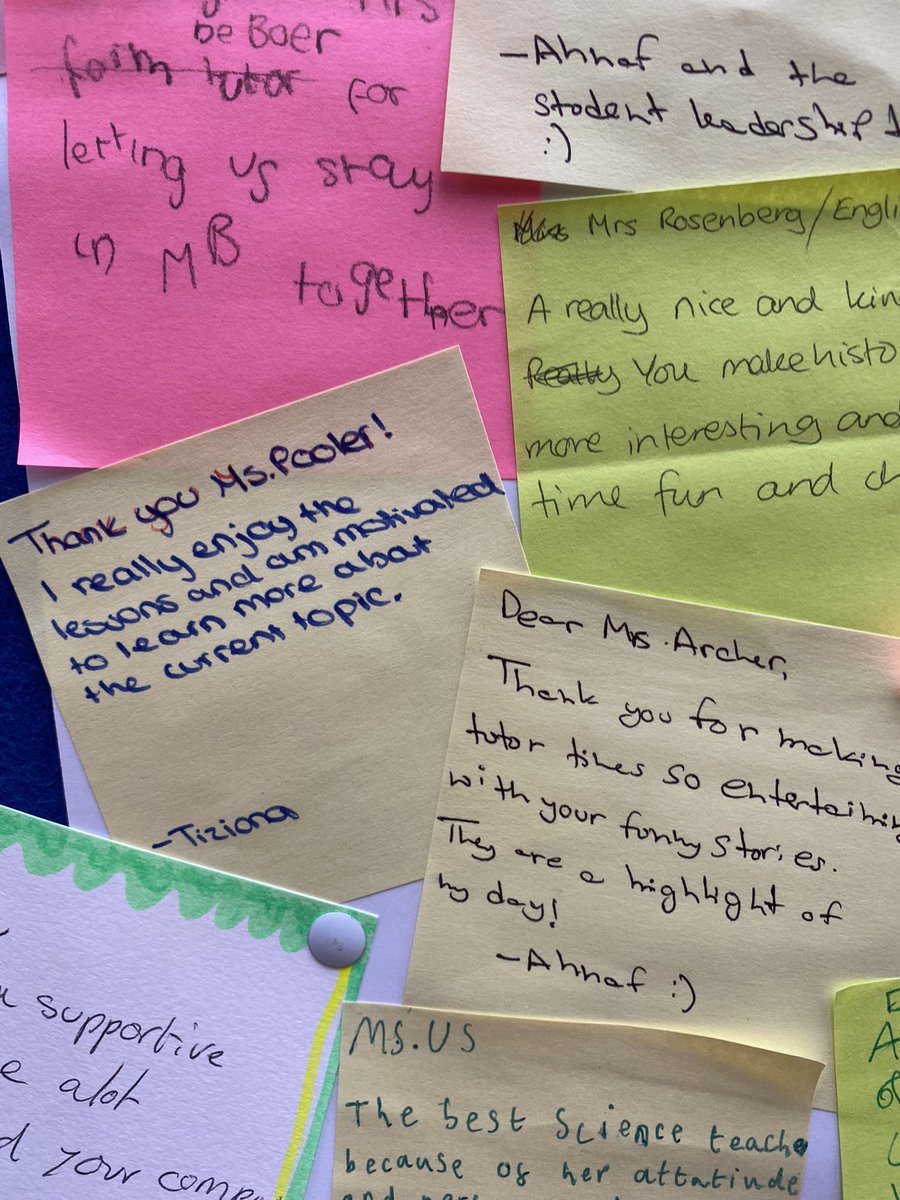 be Boer
form tutor for
letting us stay
in MB
together
-Ahnaf and the
student leadership
:)
Mrs Rosenberg/Engli
A really nice and kin
Really You make histo
more interesting and
time fun and ch
Thank you Ms. Pooler!
I really enjoy the
lessons and am motivated
to learn more about
the current topic.
-Tiziana
Dear Mrs. Archer,
Thank you for making
tutor times so entertaining
with your funny stories.
They are a highlight of
my day!
-Ahnaf :)
supportive
alot
your comp
Ms. US
The best science teache
because of her attatinde